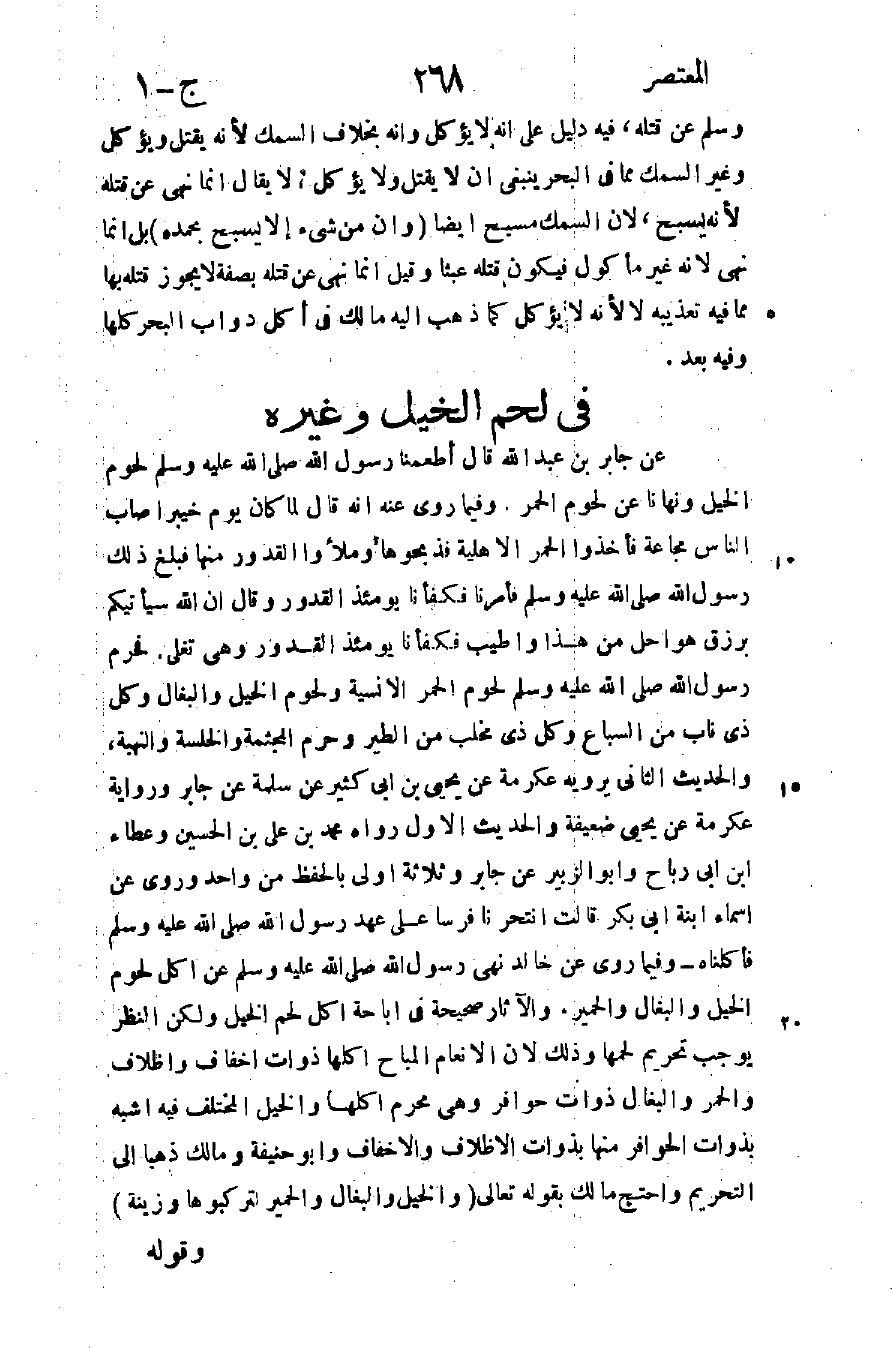 المعتصر ٢٦٨ ج-١
وسلم عن قتله، فيه دليل على انه لا يؤكل وانه بخلاف السمك لأنه يقتل ويؤكل
وغير السمك مما فى البحر ينبغى ان لا يقتل ولا يؤكل؛ لا يقال انما نهى عن قتله
لأنه يسبح، لان السمك مسبح ايضا (وان من شىء إلا يسبح بحمده) بل انما
نهى لانه غير مأكول فيكون قتله عبثا وقيل انما نهى عن قتله بصفة لا يجوز قتله بها
مما فيه تعذيبه لا لأنه لا يؤكل كما ذهب اليه مالك فى أكل دواب البحر كلها ٥
وفيه بعد .
فى لحم الخيل وغيره
عن جابر بن عبد الله قال أطعمنا رسول الله صلى الله عليه وسلم لحوم
الخيل ونهانا عن لحوم الحمر . وفيما روى عنه انه قال لما كان يوم خيبر اصاب
الناس مجاعة فأخذوا الحمر الاهلية فذبحوها وملأوا القدور منها فبلغ ذلك ١٠
رسول الله صلى الله عليه وسلم فأمرنا فكفأنا يومئذ القدور وقال ان الله سيأتيكم
برزق هو احل من هذا واطيب فكفأنا يومئذ القدور وهى تغلى . فحرم
رسول الله صلى الله عليه وسلم لحوم الحمر الانسية ولحوم الخيل والبغال وكل
ذى ناب من السباع وكل ذى مخلب من الطير وحرم المجثمة والخلسة والنهبة،
والحديث الثانى يرويه عكرمة عن يحيى بن ابى كثير عن سلمة عن جابر ورواية ١٥
عكرمة عن يحيى ضعيفة والحديث الاول رواه محمد بن على بن الحسين وعطاء
ابن ابى رباح وابو الزبير عن جابر وثلاثة اولى بالحفظ من واحد وروى عن
اسماء ابنة ابى بكر قالت انتحرنا فرسا على عهد رسول الله صلى الله عليه وسلم
فأكلناه - وفيما روى عن خالد نهى رسول الله صلى الله عليه وسلم عن اكل لحوم
الخيل والبغال والحمير . والآثار صحيحة فى اباحة اكل لحم الخيل ولكن النظر ٢٠
يوجب تحريم لحمها وذلك لان الانعام المباح اكلها ذوات اخفاف واظلاف
والحمر والبغال ذوات حوافر وهى محرم اكلها والخيل المختلف فيه اشبه
بذوات الحوافر منها بذوات الاظلاف والاخفاف وابو حنيفة ومالك ذهبا الى
التحريم واحتج مالك بقوله تعالى (والخيل والبغال والحمير لتركبوها وزينة)
وقوله